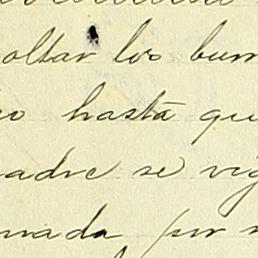 oltar los bum
o hasta qu
adre se vi
mada por